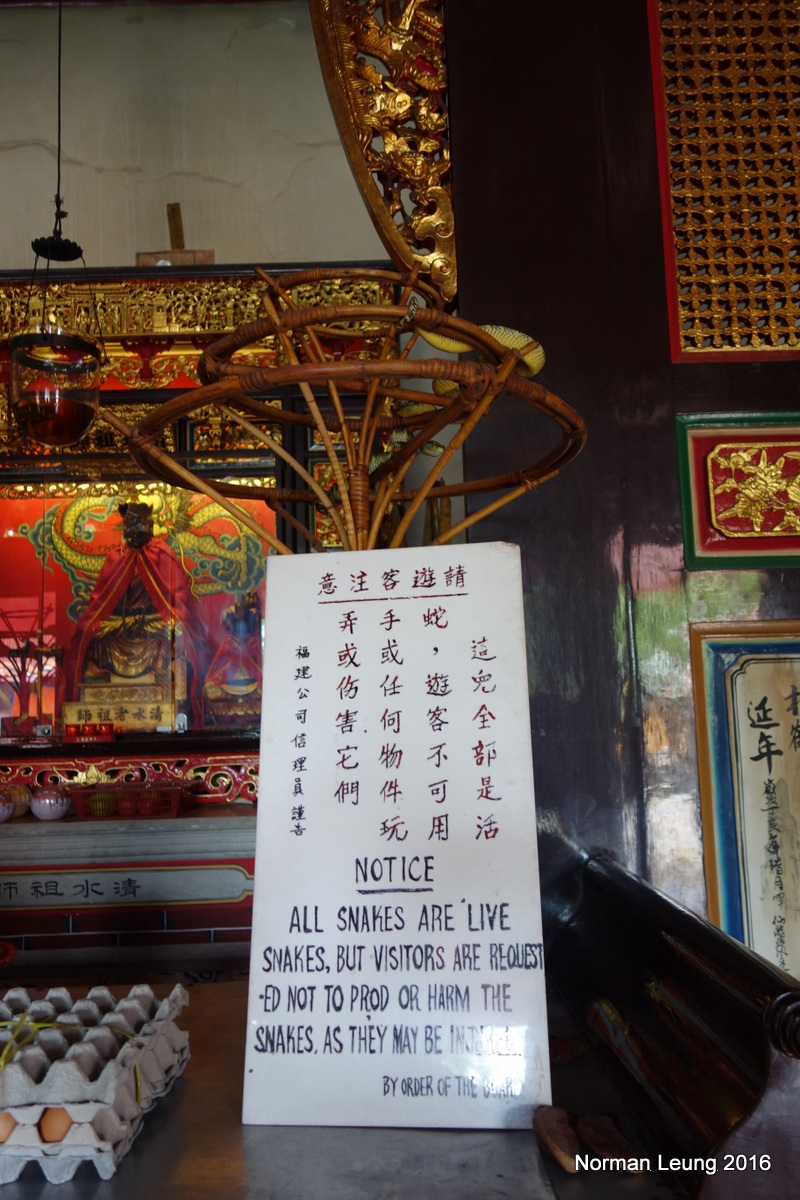 請遊客注意
這兒全部是活
蛇，遊客不可用
手或任何物件玩
弄或伤害它們
福建公司信理員謹告
NOTICE
ALL SNAKES ARE LIVE
SNAKES, BUT VISITORS ARE REQUEST
-ED NOT TO PROD OR HARM THE
SNAKES, AS THEY MAY BE INJURED.
BY ORDER OF THE BOARD
清水老祖師
清水祖師
延年
Norman Leung 2016